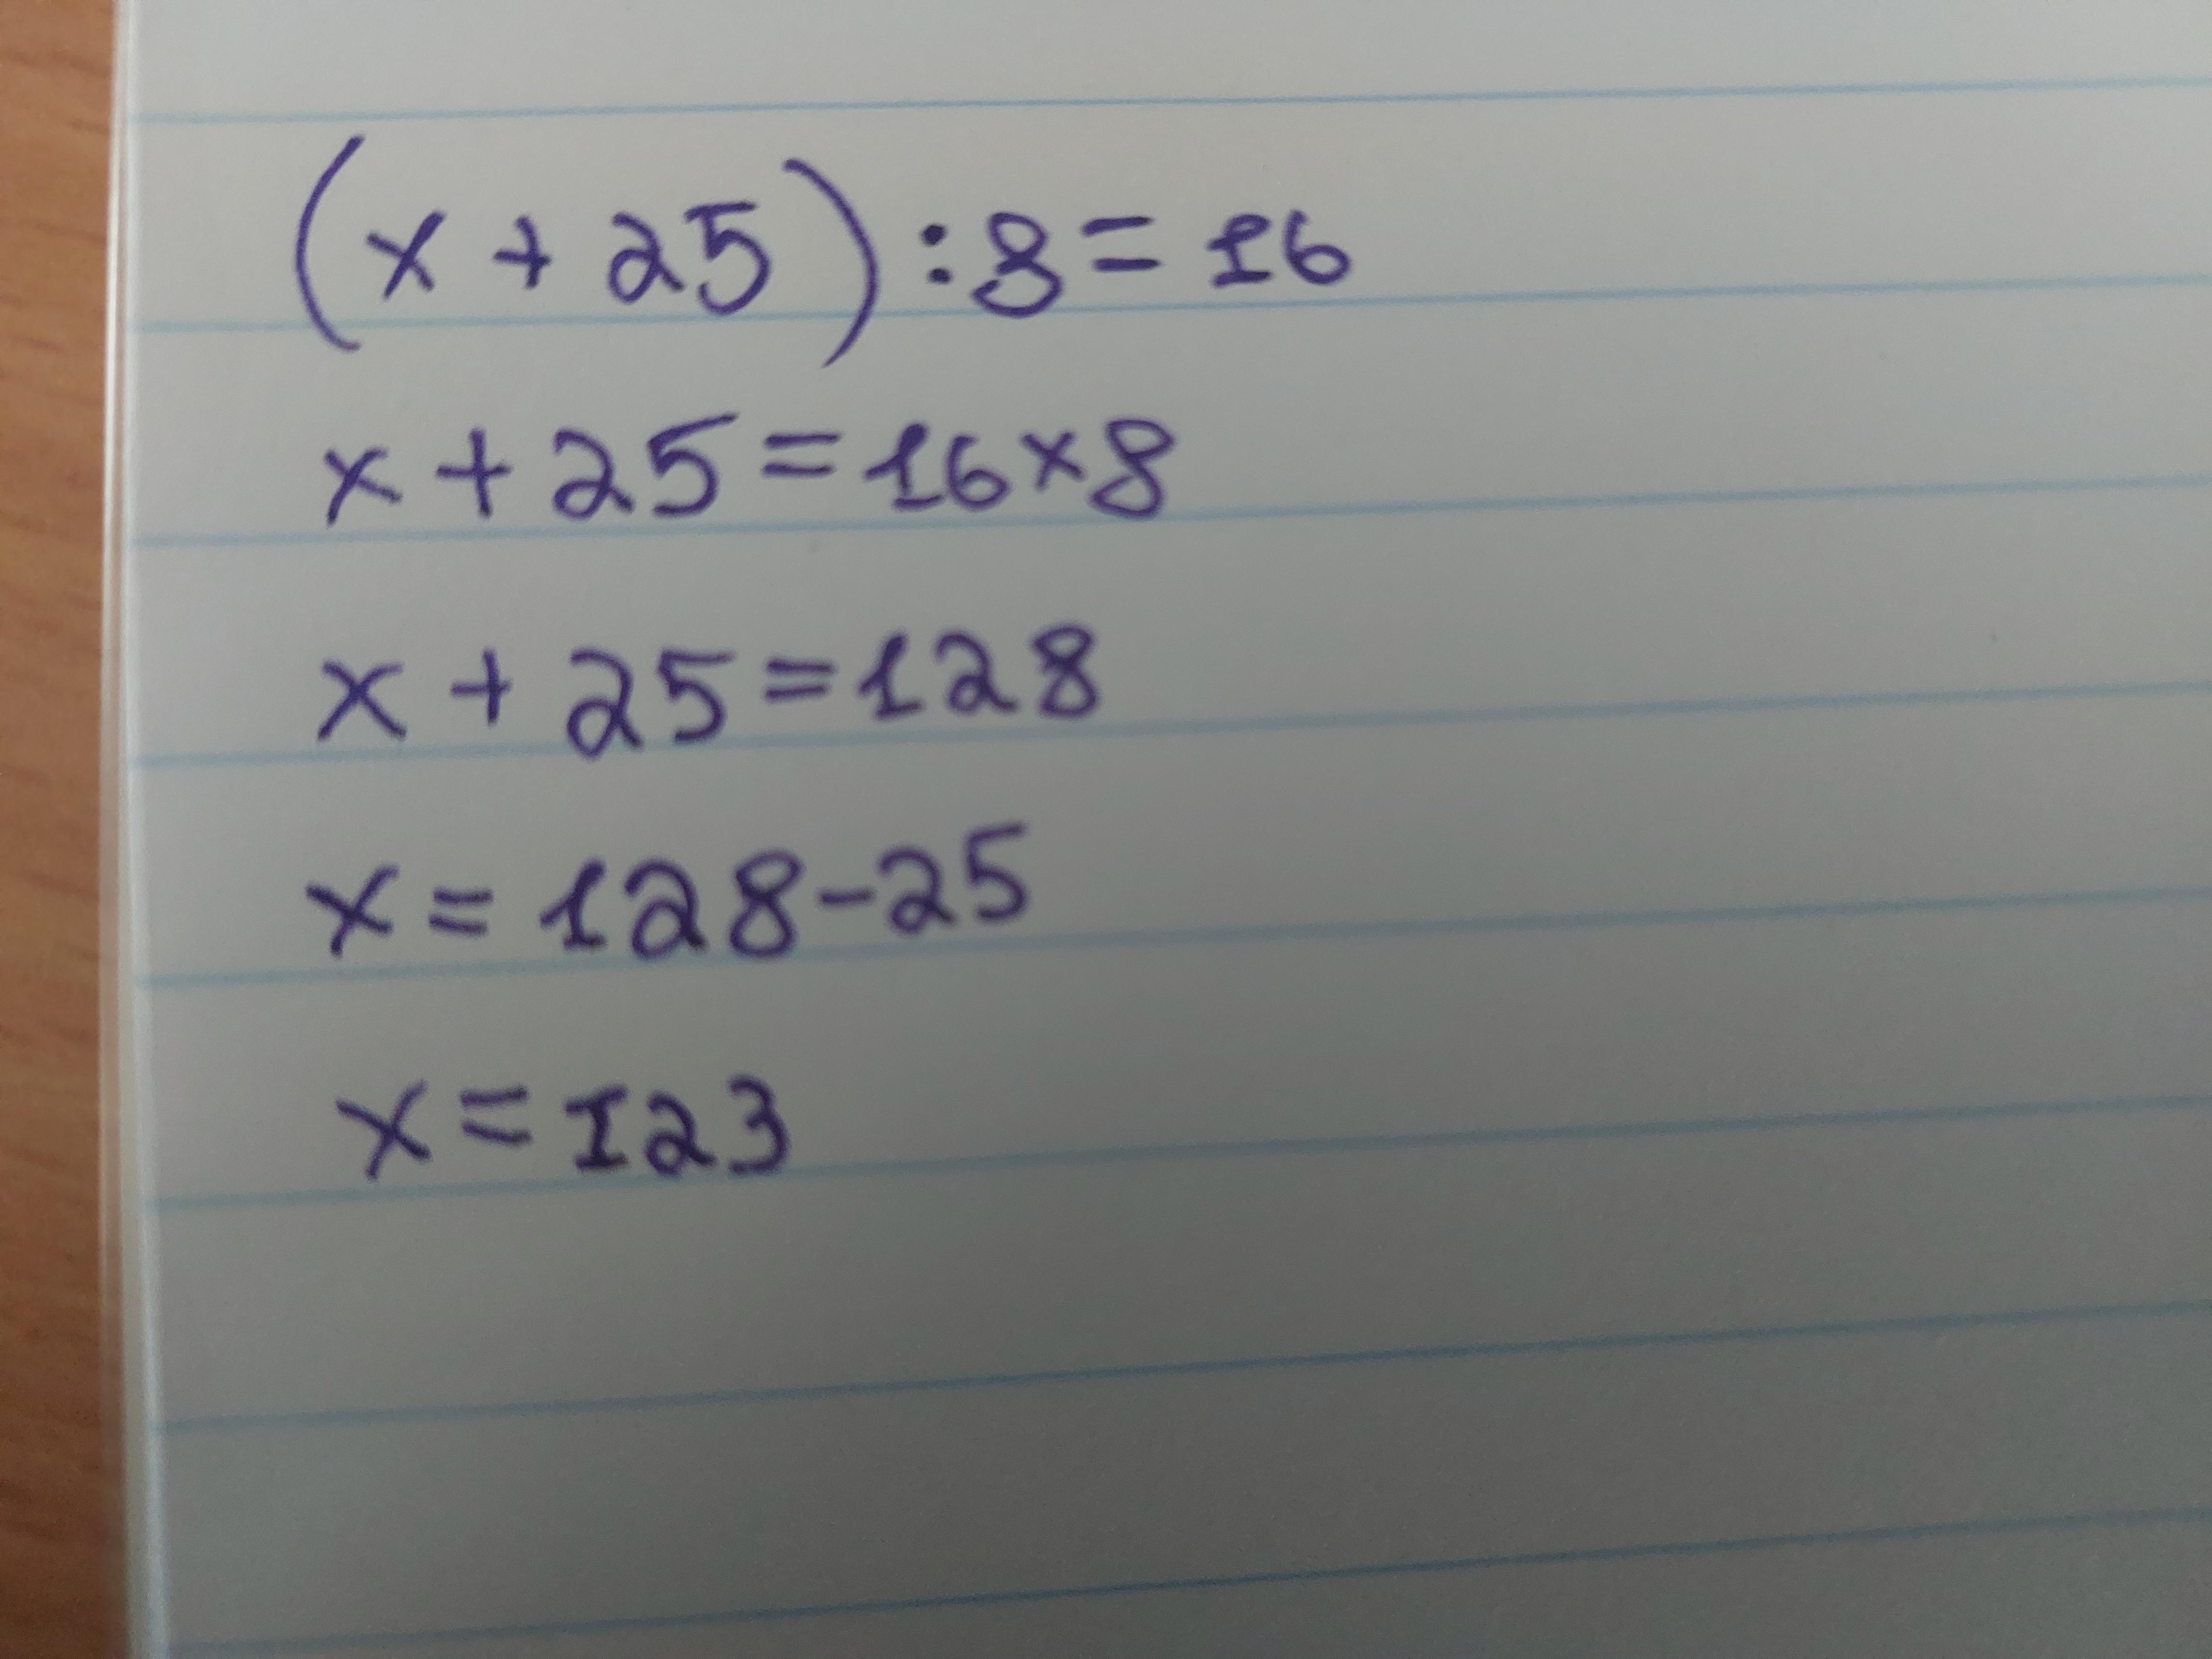 (x + 25) : 8 = 16
x + 25 = 16 × 8
x + 25 = 128
x = 128 - 25
x = 123